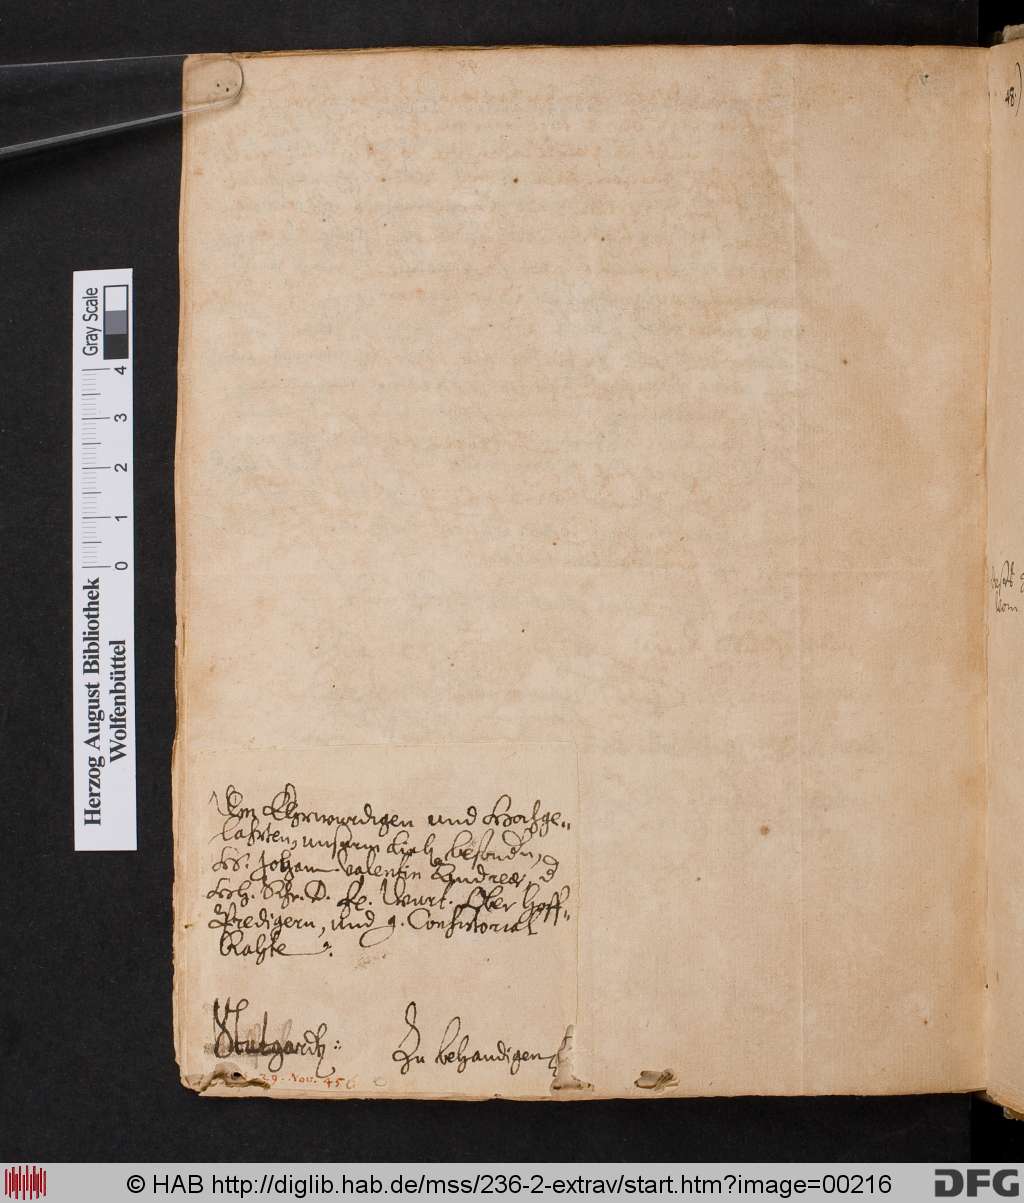 Dem Ehrwurdigen und Hochge-
lahrten, unserm lieb besondern,
H. Johann Valentin Andreæ, d
Hh. Schr. D. fe. Wurt. Ober Hoff-
Predigern, und g. Consistorial
Rahte.
Stutgardt:
Zu behandigen
29. Nov. 45.
48.)
Herzog August Bibliothek
Wolfenbüttel
0 1 2 3 4
Gray Scale
© HAB http://diglib.hab.de/mss/236-2-extrav/start.htm?image=00216
DFG